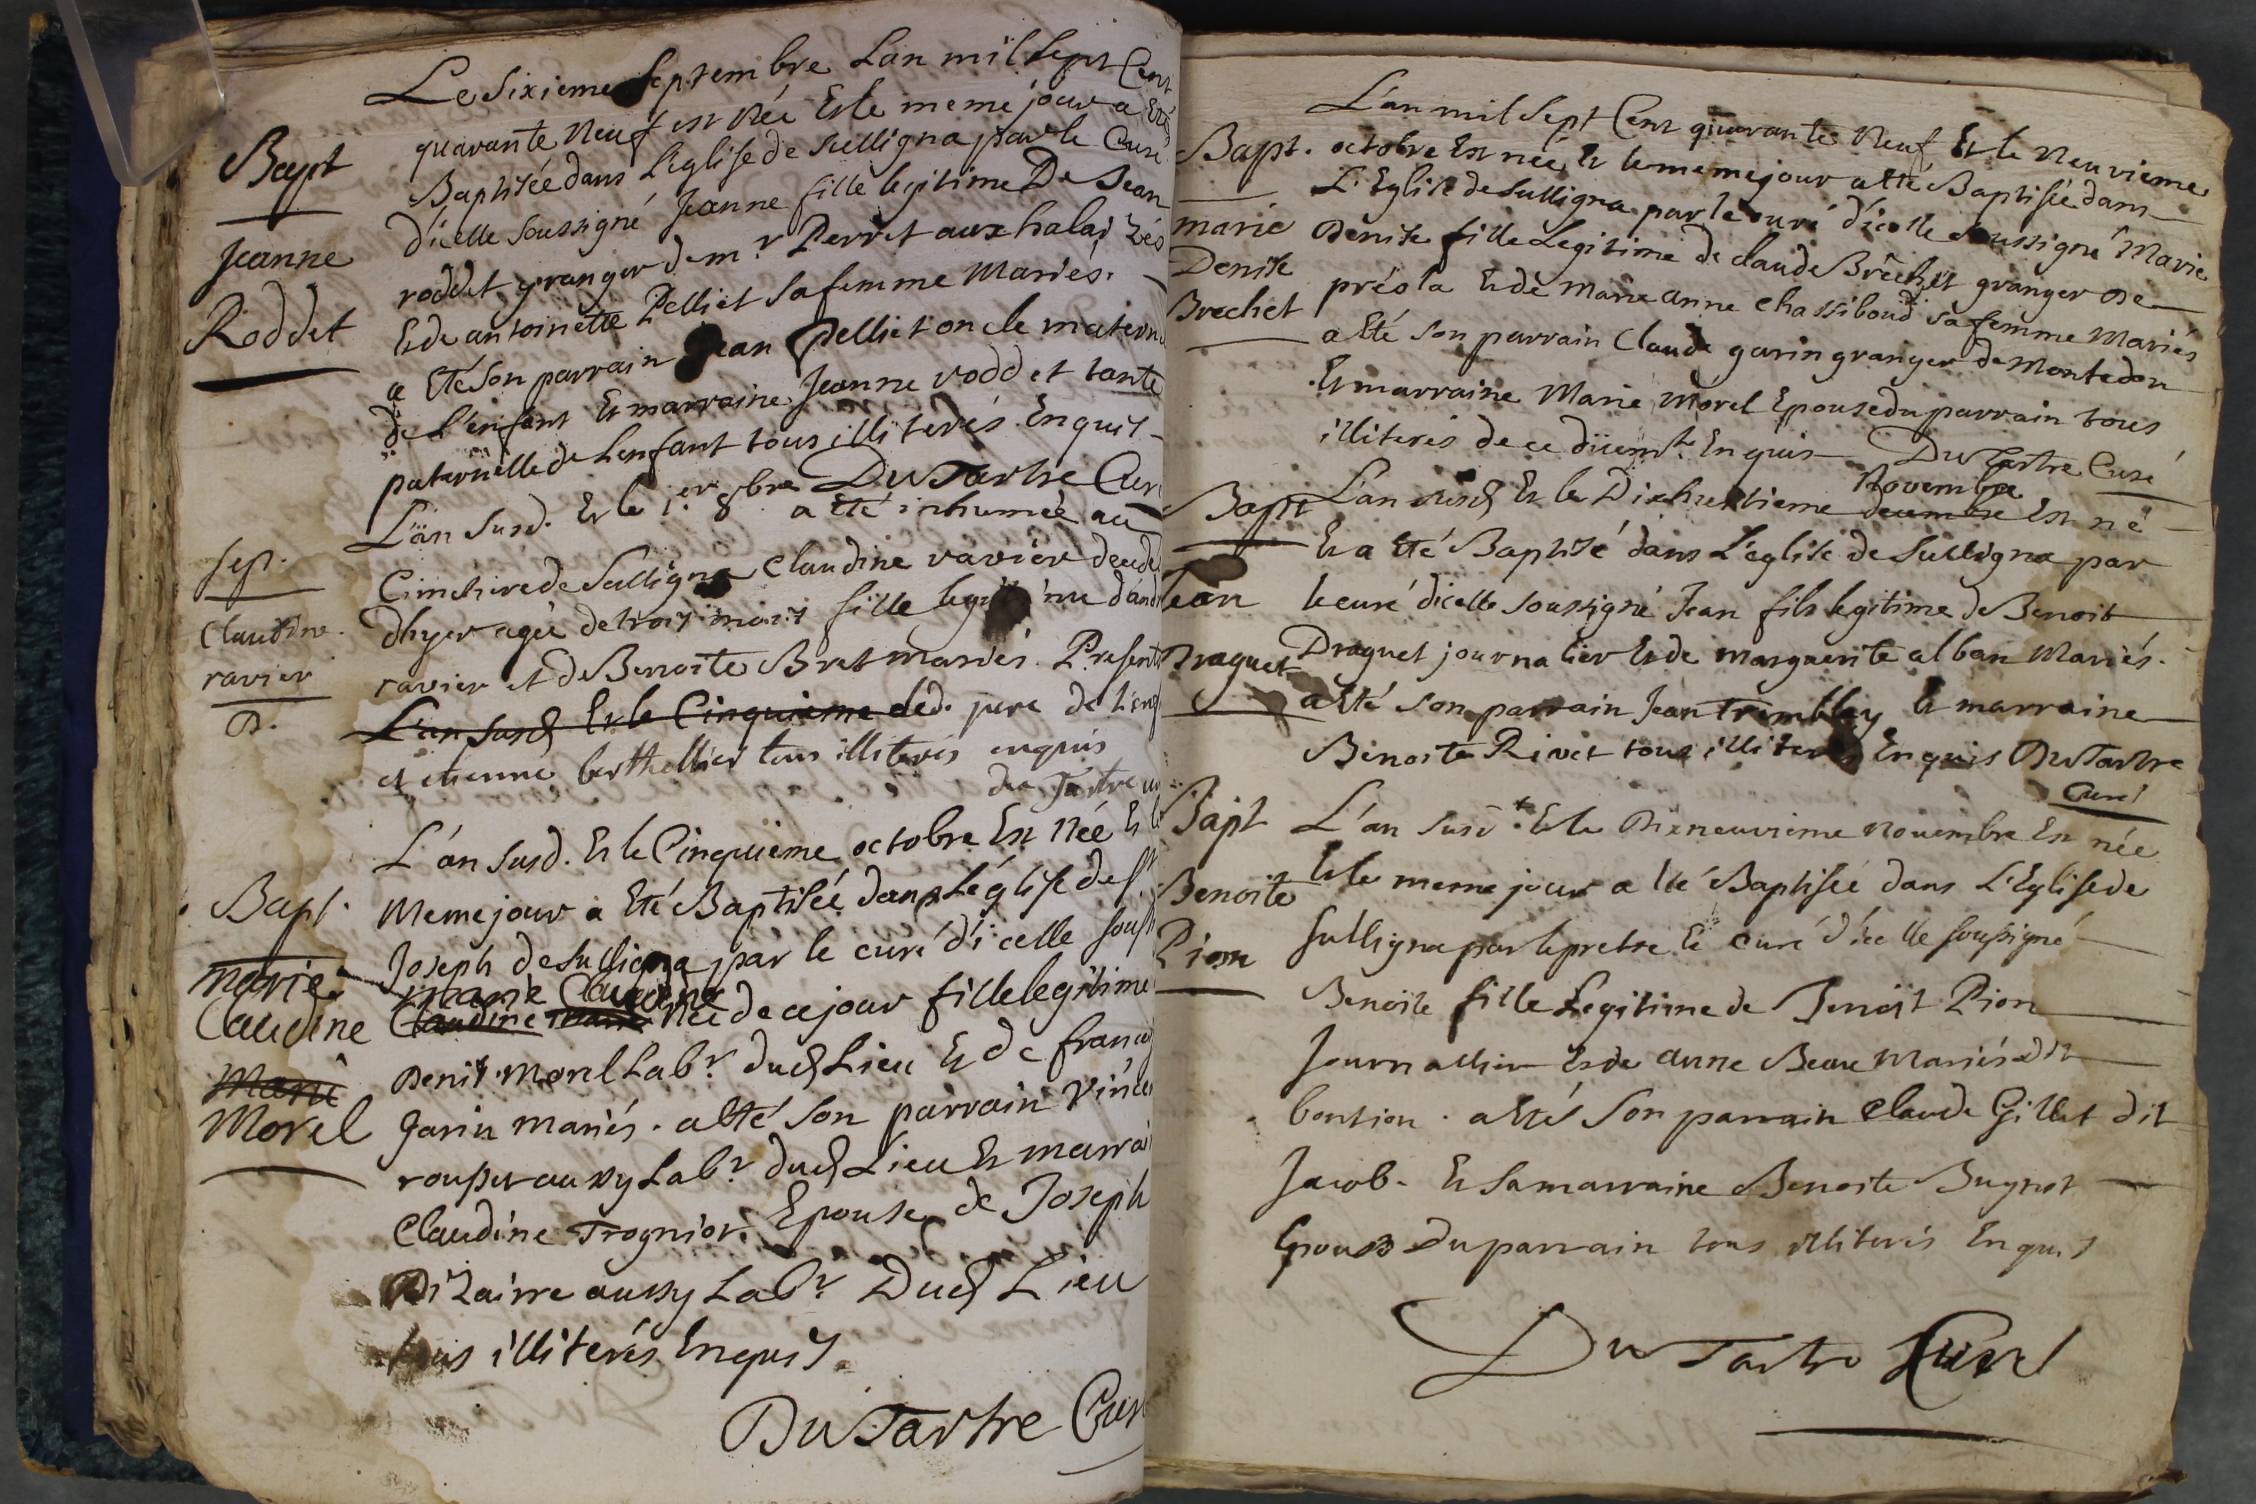 Le Sixieme Septembre Lan mil Sept Cent
quarante Neuf est Née Et le meme jour a Eté
Baptisée dans L'Eglise de Sulligna par le Curé
d'icelle Soussigné Jeanne fille legitime De Jean
roddet granger de mr. Perret aux halaizés
Et de antoinette Pelliet Sa femme Mariés.
a Eté Son parrain Jean Pelliet oncle matern
de L'enfant Et marraine Jeanne roddet tante
paternelle de Lenfant tous illiterés Enquis
DuTartre Curé
Bapt
Jeanne
Roddet
L'an susd. Et le 1er. 8bre a Eté inhumée au
Cimetiere de Sulligna Claudine ravier decede
dhyer agée de trois mois fille legitime d'and
ravier et de Benoite Bret mariés. Présent
L'an susd Et le Cinquieme ded. pere de L'enf
et etienne berthellier tous illiterés enquis
du Tartre cu
sep.
Claudine
ravier
D.
L'an susd. Et le Cinquieme octobre Est Née Et le
Meme jour a Eté Baptisée dans L'église de St.
Joseph de Sulligna par le curé d'icelle souss
Marie Claudine
Claudine Marie Née de ce jour fille legitime
Denis Morel Labr. dud Lieu Et de franc
Garin mariés. a Eté Son parrain Vince
rouset aussy Labr. dud Lieu Et marrai
Claudine Trognior Epouse de Joseph
Dizairre aussy Labr. Dud Lieu
tous illiterés Enquis
DuTartre Cur
Bapt.
marie
Claudine
Marie
Morel
L'an mil Sept Cent quarante Neuf, Et le Neuvieme
octobre Est née Et le meme jour a Eté Baptisée dans
L'Eglise de Sulligna par le curé d'icelle soussigné Marie
Denise fille Legitime de claude Brêchet granger De
présla Et de Marie anne chassiboud sa femme Mariés
a Eté Son parrain Claude garin granger de Montedon
Et marraine Marie Morel Epouse du parrain tous
illiterés de ce duem.t Enquis DuTartre Curé
Bapt.
marie
Denise
Brechet
L'an susd Et le Dixhuitieme decembre Novembre Est né
Et a Eté Baptisé dans L'eglise de Sulligna par
le curé dicelle soussigné Jean fils legitime de Benoit
Draguet journalier Et de marguerite alban Mariés.
a Eté son parrain Jean Tremblay Et marraine
Benoite Rivet tous illiterés Enquis DuTartre
Curé
Bapt
Jean
Draguet
L'an susd.t Et le Dixneuvieme novembre Est née
Et le meme jour a Eté Baptisée dans L'Eglise de
Sulligna par le pretre le curé d'icelle soussigné
Benoite fille Legitime de Benoit Pion
Journallier Et de anne Beau Mariés
bontion. a Eté Son parrain Claude Gillet dit
Jacob. Et Sa marraine Benoite Bugnot
Epouse du parrain tous illiterés Enquis
DuTartre Curé
Bapt
Benoite
Pion